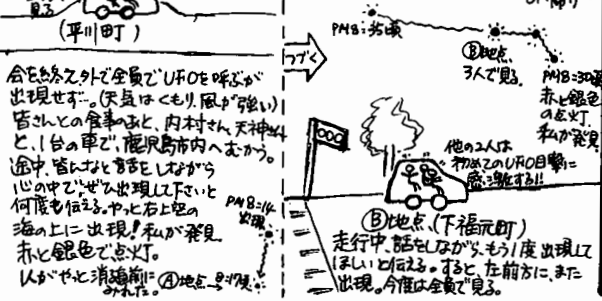 見る
(平川町)
会を終え外で全員でUFOを呼ぶが
出現せず…。(天気はくもり、風が強い)
皆さんとの食事のあと、内村さん、天神さん
と、1台の車で、鹿児島市内へむかう。
途中、皆んなと話をしながら
心の中で、ぜひ出現して下さいと
何度も伝える。やっと右上空の
海の上に出現!私が発見
赤と銀色で点灯。
1人がやっと消滅前に
みれた。
PM8=14
出現
Ⓐ地点
8=17頃
つづく
PM8=35頃
Ⓑ地点
3人で見る。
PM8=30頃
赤と銀色
の点灯
私が発見
他の2人は
初めてのUFO目撃に
感激する!!
Ⓑ地点、(下福元町)
走行中、話をしながら、もう1度出現して
ほしいと伝える。すると、左前方に、また
出現。今度は全員で見る。